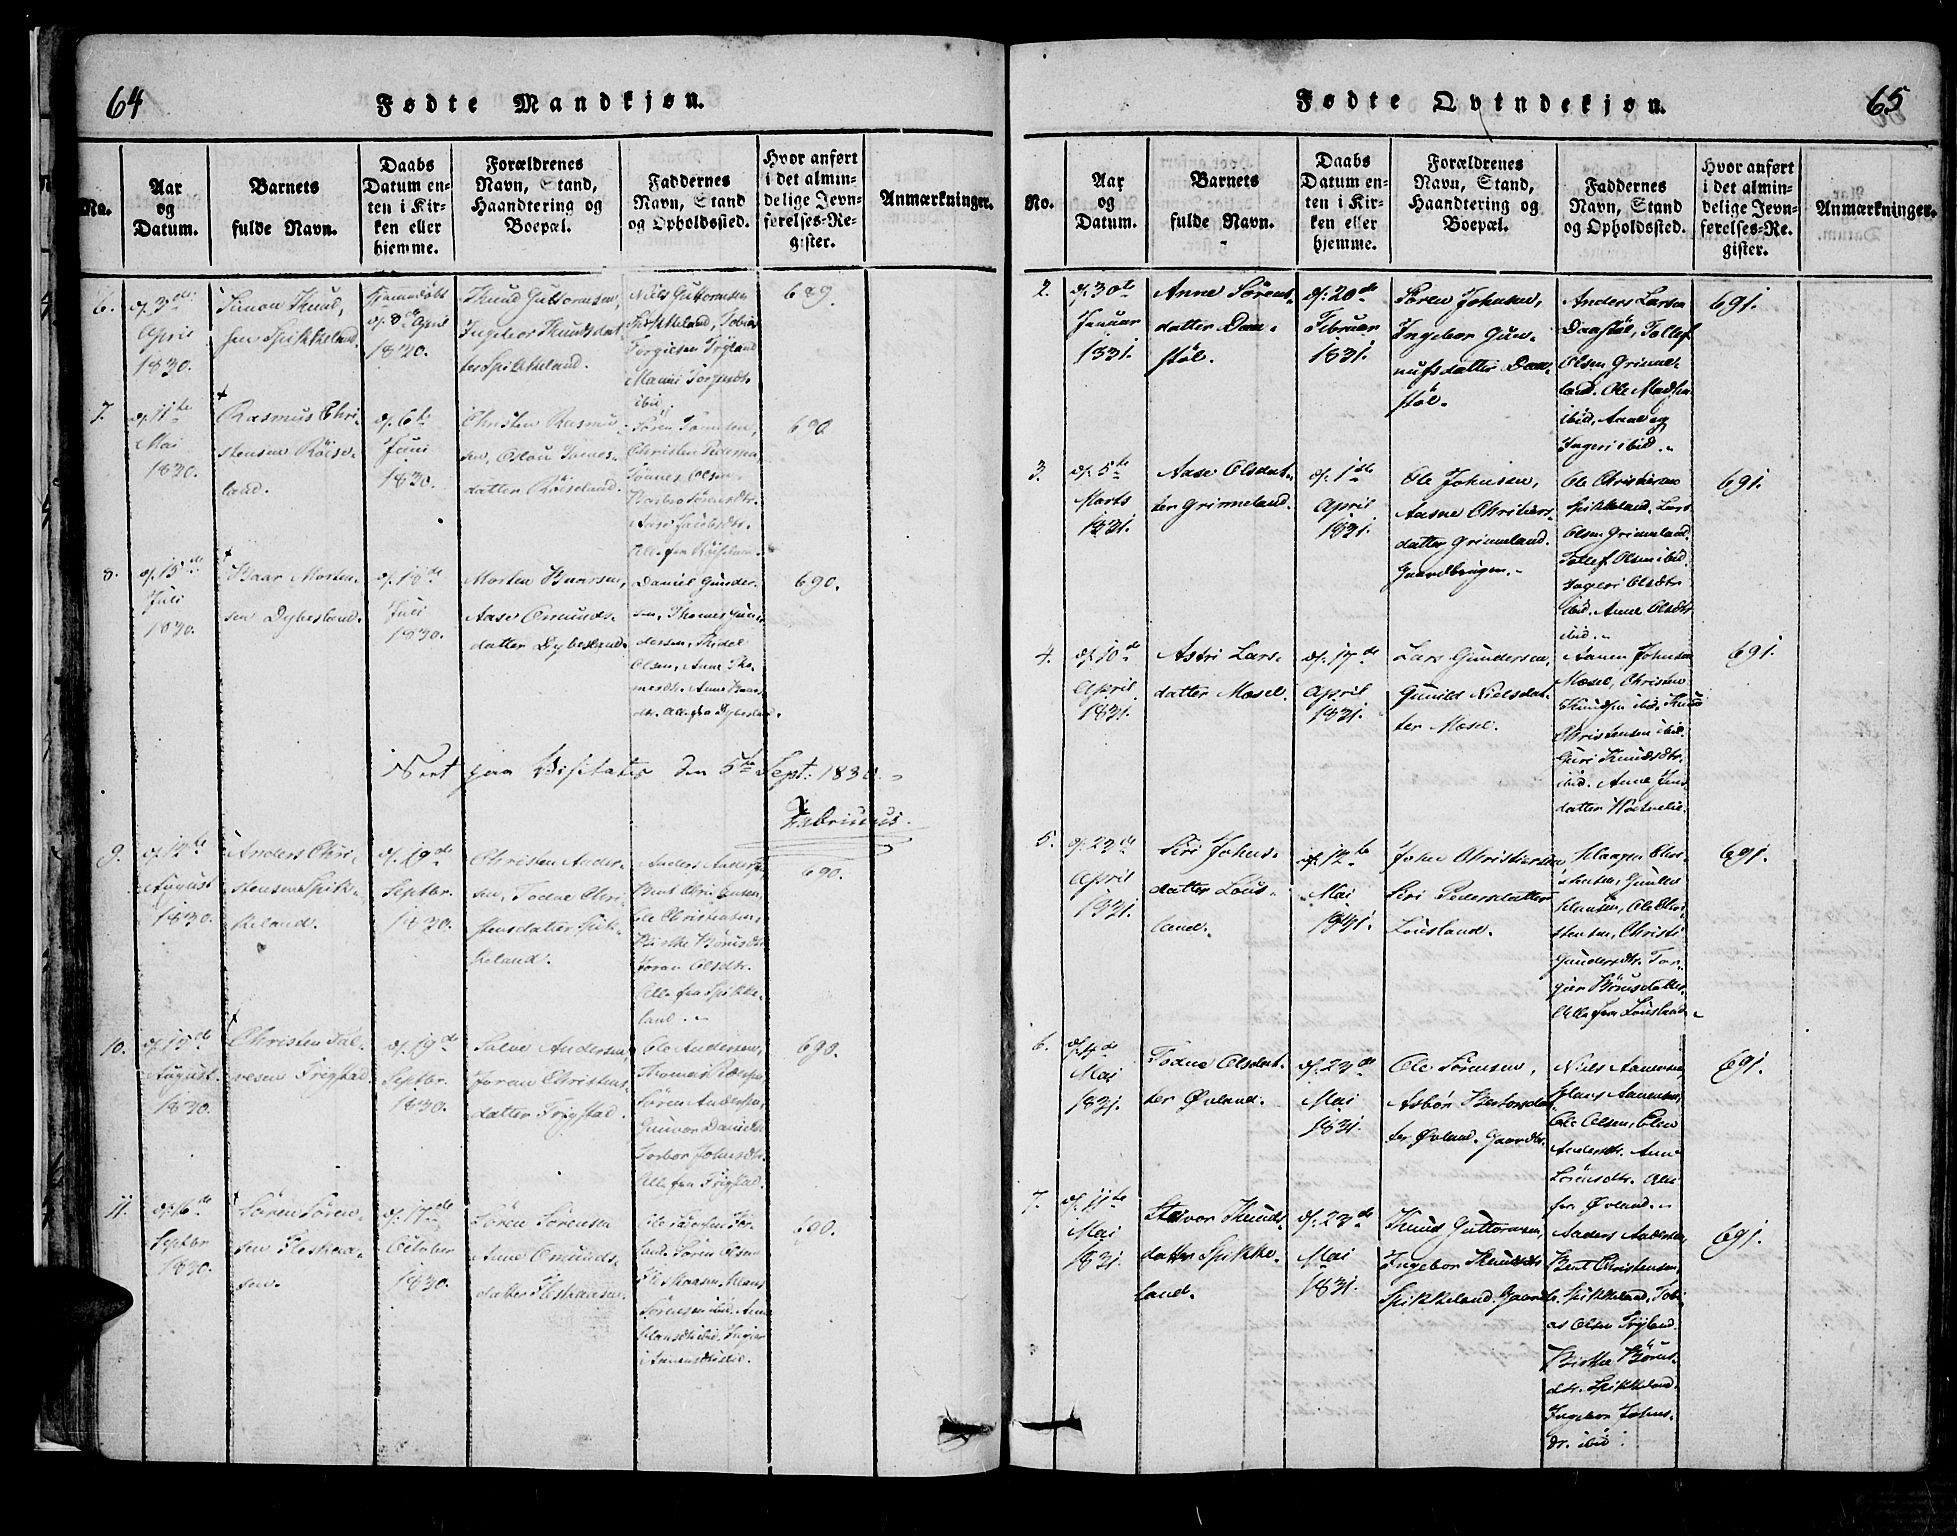 64
Fødte Mandkjøn.
No.
Aar
og
Datum.
Barnets
fulde Navn.
Daabs
Datum en-
ten i Kir-
ken eller
hjemme.
Forældrenes
Navn, Stand,
Haandtering og
Boepæl.
Faddernes
Navn, Stand
og Opholdssted.
Hvor anført
i det almin-
delige Jevn-
førelses-Re-
gister.
Anmærkninger.
6.
d. 3de
April
1830.
Simon Knud-
sen Spikkeland.
Hjemmedøbt
d. 8de April
1830.
Knud Guttormsen,
Ingebor Knudsdat-
ter Spikkeland.
Niels Guttormsen
Spikkeland, Tobias
Torgiesen Trygland
ibid.
689
7.
d. 11te
Mai
1830.
Rasmus Chri-
stensen Röise-
land.
d. 6te
Juni
1830.
Christen Rasmu-
sen, Oslou Tönnes-
datter Röiseland.
Christen Pedersen,
Tönnes Olsen,
Alle fra Röiseland.
690
8.
d. 15de
Juli
1830.
Baar Morten-
sen Dybesland.
d. 18de
Juli
1830.
Morten Baarsen,
Aase Omunds-
datter Dybesland.
Daniel Gunder-
sen, Thomes Gun-
dersen, Tredal
Olsen, Anne Tho-
mesdtr. Anne Baars-
dtr. Alle fra Dybesland.
690.
Seet paa Visitats den 5te Sept: 1830.
9.
d. 12te
August
1830.
Anders Chri-
stensen Spik-
keland.
d. 19de
Septbr.
1830.
Christen Ander-
sen, Todne Chri-
stensdatter Spik-
keland.
Anders Anders
Bent Christensen,
Ole Christensen,
Birthe Börusdtr.
Joran Olsdtr.
Alle fra Spikke-
land.
690.
10.
August
1830.
Christen Sal-
vesen Frigstad.
d. 19de
Septbr.
1830.
Salve Andersen,
Joren Christens-
datter Frigstad.
Ole Andersen,
Thomas Pedersen,
Sören Andersen,
Gunvor Daniels
Torbor Johnsdtr.
Alle fra Frigstad.
690.
11.
d. 16de
Septbr
1830.
Sören Sören-
sen Fleskaa-
sen.
d. 17de
October
1830.
Sören Sörensen
Anne Omunds-
datter Fleskaasen.
land. Sören Olsen
Fleskaasen, Hans
Sörensen ibid. Anne
Hansdtr ibid. Inger
690.
65
Fødte Qvindekjøn.
No.
Aar
og
Datum.
Barnets
fulde Navn.
Daabs
Datum en-
ten i Kir-
ken eller
hjemme.
Forældrenes
Navn, Stand,
Haandtering og
Boepæl.
Faddernes
Navn, Stand
og Opholdssted.
Hvor anført
i det almin-
delige Jevn-
førelses-Re-
gister.
Anmærkninger.
2.
d. 30te
Januar
1831.
Anne Sörens-
datter Daa-
stöl.
d. 20de
Februar
1831.
Sören Johnsen,
Ingebor Gun-
nufsdatter Daa-
stöl.
Anders Larsen
Daastöl, Tollef
Olsen Grimme-
land. Ole Madsen
ibid, Aane og
Ingeri ibid.
691.
3.
d. 5te
Marts
1831.
Aase Olsdat-
ter Grimeland.
d. 1ste
April
1831.
Ole Johnsen,
Aasne Christens-
datter Grimeland.
Gaardbrugere.
Ole Christensen
Spikkeland, Lars
Olsen Grimeland.
Tollef Olsen ibid
Ingeri Olsdtr
ibid. Anne Olsdtr
ibid.
691.
4.
d. 10de
April
1831.
Astri Lars-
datter Mosel.
d. 17de
April
1831.
Lars Gundersen,
Gunild Nielsdat-
ter Mosel.
Aanen Johnsen
Mosel, Christen
Knudsen ibid. Knud
Christensen ibid.
Guri Knudsdtr.
ibid. Anne Jens
datter
691.
5.
d. 23de
April
1831.
Siri Johns-
datter Lous-
land.
d. 12te
Mai
1831.
John Christensen
Siri Pedersdatter
Lousland.
Haagen Chri-
stensen, Gunder
Hansen, Ole Chri-
stensen, Christi
Gundersdtr. Tor-
gier Börusdatter
Alle fra Lousland.
691.
6.
d. 4de
Mai
1831.
Todne Olsdat-
ter Øvland.
d. 23de
Mai
1831.
Ole Sörensen,
Asbör Bertorsdat-
ter Øvland. Gaardbr.
Niels Aanensen,
Hans Aanensen,
Ole Olsen, Elen
Andersdtr. Anne
Sörensdtr. Alle
fra Øvland.
691.
7.
d. 11te
Mai
1831.
Stavor Knuds-
datter Spikke-
land.
d. 23de
Mai
1831.
Knud Guttormsen,
Ingebor Knudsdtr
Spikkeland. Gaardbr.
Anders Andersen,
Bent Christensen,
Spikkeland, Tobi-
as Olsen Trygland
Birthe Börus-
dtr. Spikkeland.
Ingebor Johns-
dr. ibid.
691.